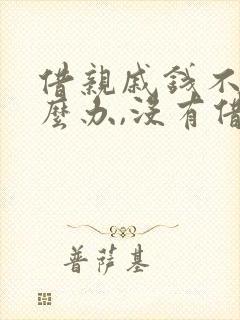 借親戚錢不
麼办,没有借
普薩基